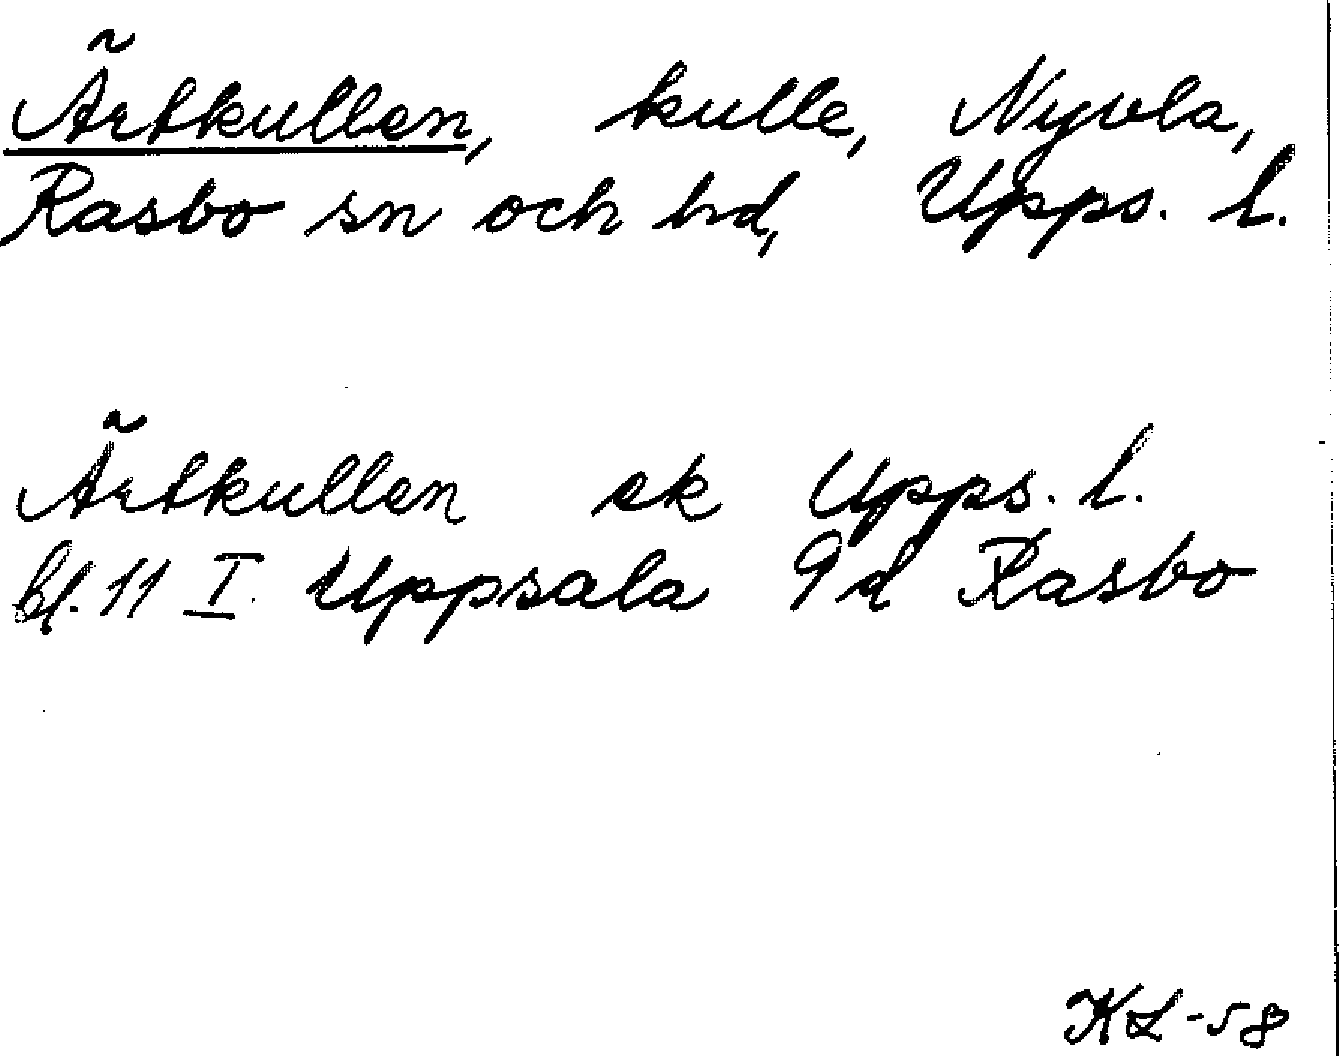 Ärtkullen, kulle, Nyvla,
Rasbo sn och hd, Upps. l.
Ärtkullen ek Upps. l.
bl. 11 I. Uppsala 9d Rasbo
KL-58